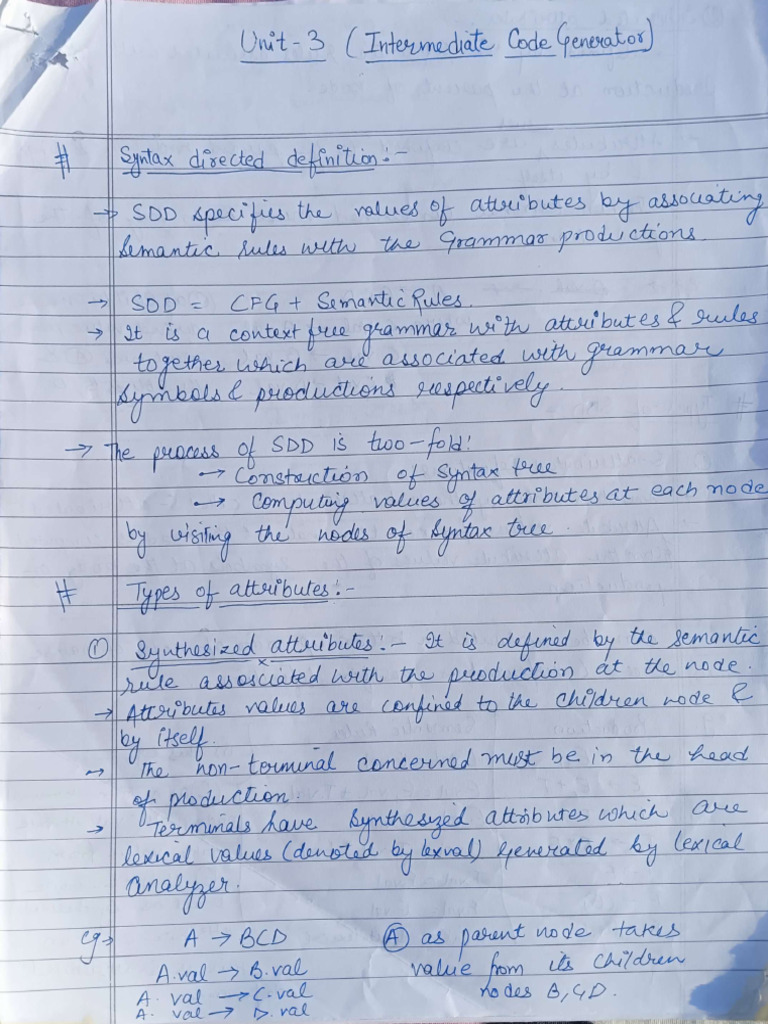 Unit-3 (Intermediate Code Generator)
# Syntax directed definition:-
→ SDD specifies the values of attributes by associating
semantic rules with the Grammar productions.
→ SDD = CFG + Semantic Rules.
→ It is a context free grammar with attributes & rules
together which are associated with grammar
symbols & productions respectively.
→ The process of SDD is two-fold:
→ Construction of Syntax tree
→ Computing values of attributes at each node
by visiting the nodes of syntax tree.
# Types of attributes:-
① Synthesized attributes:- It is defined by the semantic
rule assosciated with the production at the node.
→ Attributes values are confined to the children node &
by itself.
→ The non-terminal concerned must be in the head
of production.
→ Terminals have synthesized attributes which are
lexical values (denoted by lexval) generated by lexical
analyzer.
eg→ A → BCD Ⓐ as parent node takes
A.val → B.val value from its children
A. val → C.val nodes B, C, D.
A. val → D. val